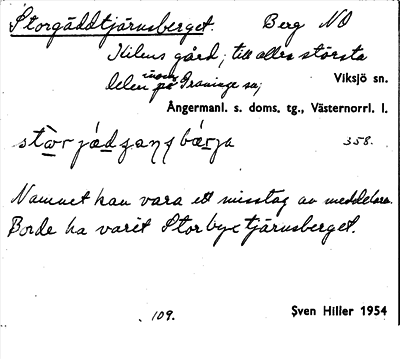 Storgäddtjärnsberget. Berg NO
Kilens gård; till allra största
delen på inom Graninge sn;
Viksjö sn.
Ångermanl. s. doms. tg., Västernorrl. l.
358.
Namnet kan vara ett misstag av meddelaren.
Borde ha varit Storbyxtjärnsberget.
109.
Sven Hiller 1954